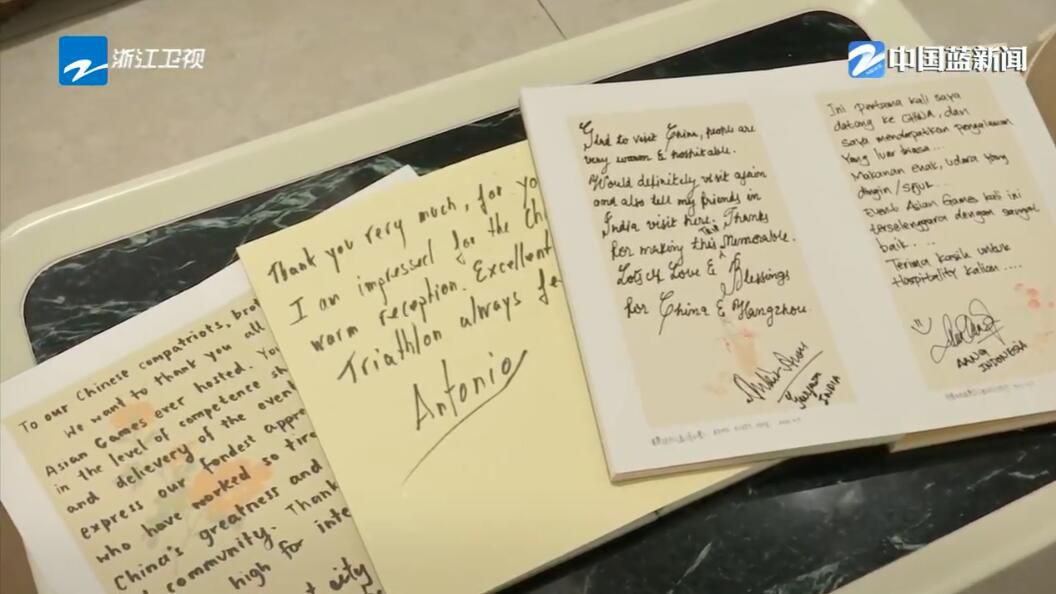 浙江卫视
中国蓝新闻
NEWS
To our Chinese compatriots, bro
We want to thank you all
Asian Games ever hosted. You
in the level of competence sh
and delievery of the event
express our fondest appre
who have worked so tire
China's greatness and
d community. Thank
high for inte
t city
Thank you very much, for yo
I an impressed for the Ch
warm reception. Excellent
Triathlon always fe
Antonio
Glad to visit China, people are
very warm & hospitable.
Would definitely visit again
and also tell my friends in
India visit here. Thanks
for making this Trip Memorable.
Lots of Love & Blessings
for China & Hangzhou.
INDIA
Ini Pertama kali saya
datang ke CHINA, dan
saya mendapatkan Pengalaman
Yang luar biasa...
Makanan enak, udara yang
dingin/sejuk...
Event Asian Games kali ini
terselenggara dengan sangat
baik....
Terima kasih untuk
Hospitality kalian....
AANG
INDONESIA